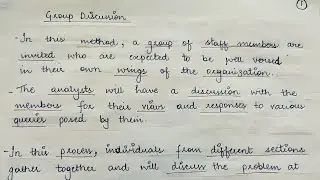 (1)
Group Discussion
- In this method, a group of staff members are
invited who are expected to be well versed
in their own wings of the organization.
- The analysts will have a discussion with the
members for their views and responses to various
queries posed by them.
- In this process, individuals from different sections
gather together and will discuss the problem at